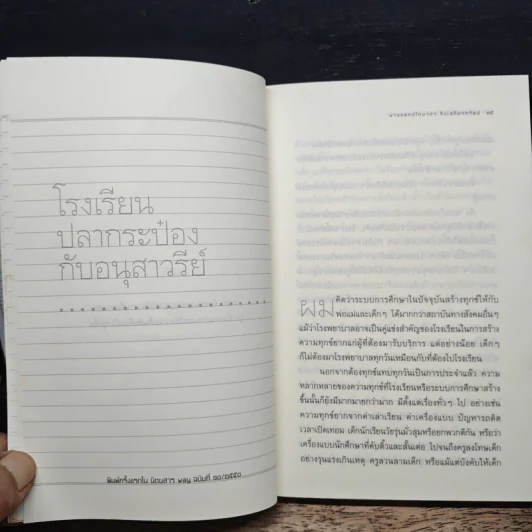 โรงเรียน
ปลากระป๋อง
กับอนุสาวรีย์
พิมพ์ครั้งแรกใน นิตยสาร way ฉบับที่
ผมคิดว่าระบบการศึกษาในปัจจุบันสร้างทุกข์ให้กับ
พ่อแม่และเด็กๆ ได้มากกว่าสถาบันทางสังคมอื่นๆ
แม้ว่าโรงพยาบาลอาจเป็นคู่แข่งสำคัญของโรงเรียนในการสร้าง
ความทุกข์ยากแก่ผู้ที่ต้องมารับบริการ แต่อย่างน้อย เด็กๆ
ก็ไม่ต้องมาโรงพยาบาลทุกวันเหมือนกับที่ต้องไปโรงเรียน
นอกจากต้องทุกข์แทบทุกวันเป็นการประจำแล้ว ความ
หลากหลายของความทุกข์ที่โรงเรียนหรือระบบการศึกษาสร้าง
ขึ้นนั้นก็ยังมีมากมายกว่ามาก มีตั้งแต่เรื่องทั่วๆ ไป อย่างเช่น
ความทุกข์ยากจากค่าเล่าเรียน ค่าเครื่องแบบ ปัญหารถติด
เวลาเปิดเทอม เด็กนักเรียนวัยรุ่นมั่วสุมหรือยกพวกตีกัน หรือว่า
เครื่องแบบนักศึกษาที่คับติ้วและสั้นเต่อ ไปจนถึงครูลงโทษเด็ก
อย่างรุนแรงเกินเหตุ ครูลวนลามเด็ก หรือแม้แต่บังคับให้เด็ก